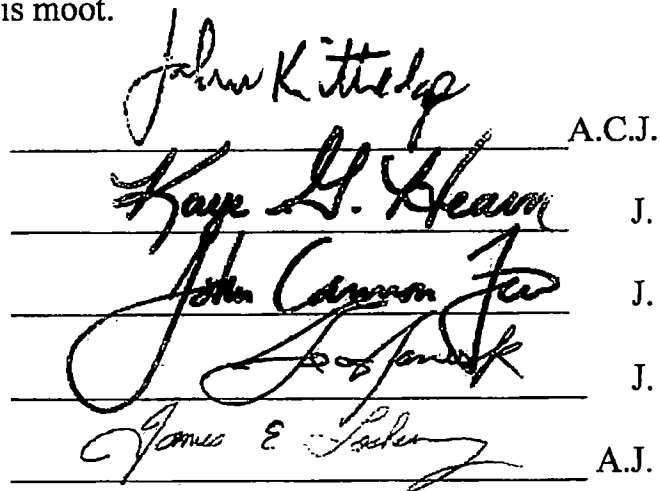 is moot.
John Kittredge A.C.J.
Kaye G. Hearn J.
John Cannon Few J.
J.
James E. A.J.